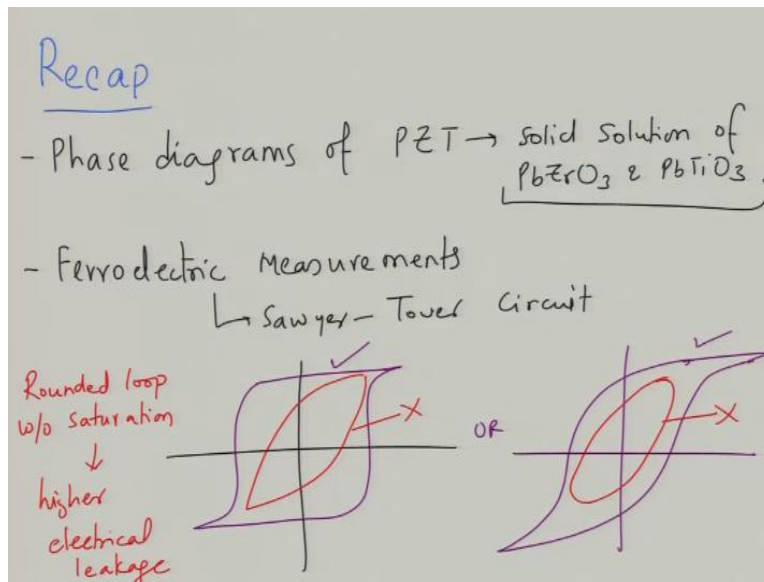 Recap
- Phase diagrams of PZT → Solid Solution of
PbZrO3 & PbTiO3
- Ferroelectric Measurements
↳ Sawyer - Tower Circuit
Rounded loop
w/o saturation
↓
higher
electrical
leakage
✓
X
OR
✓
X